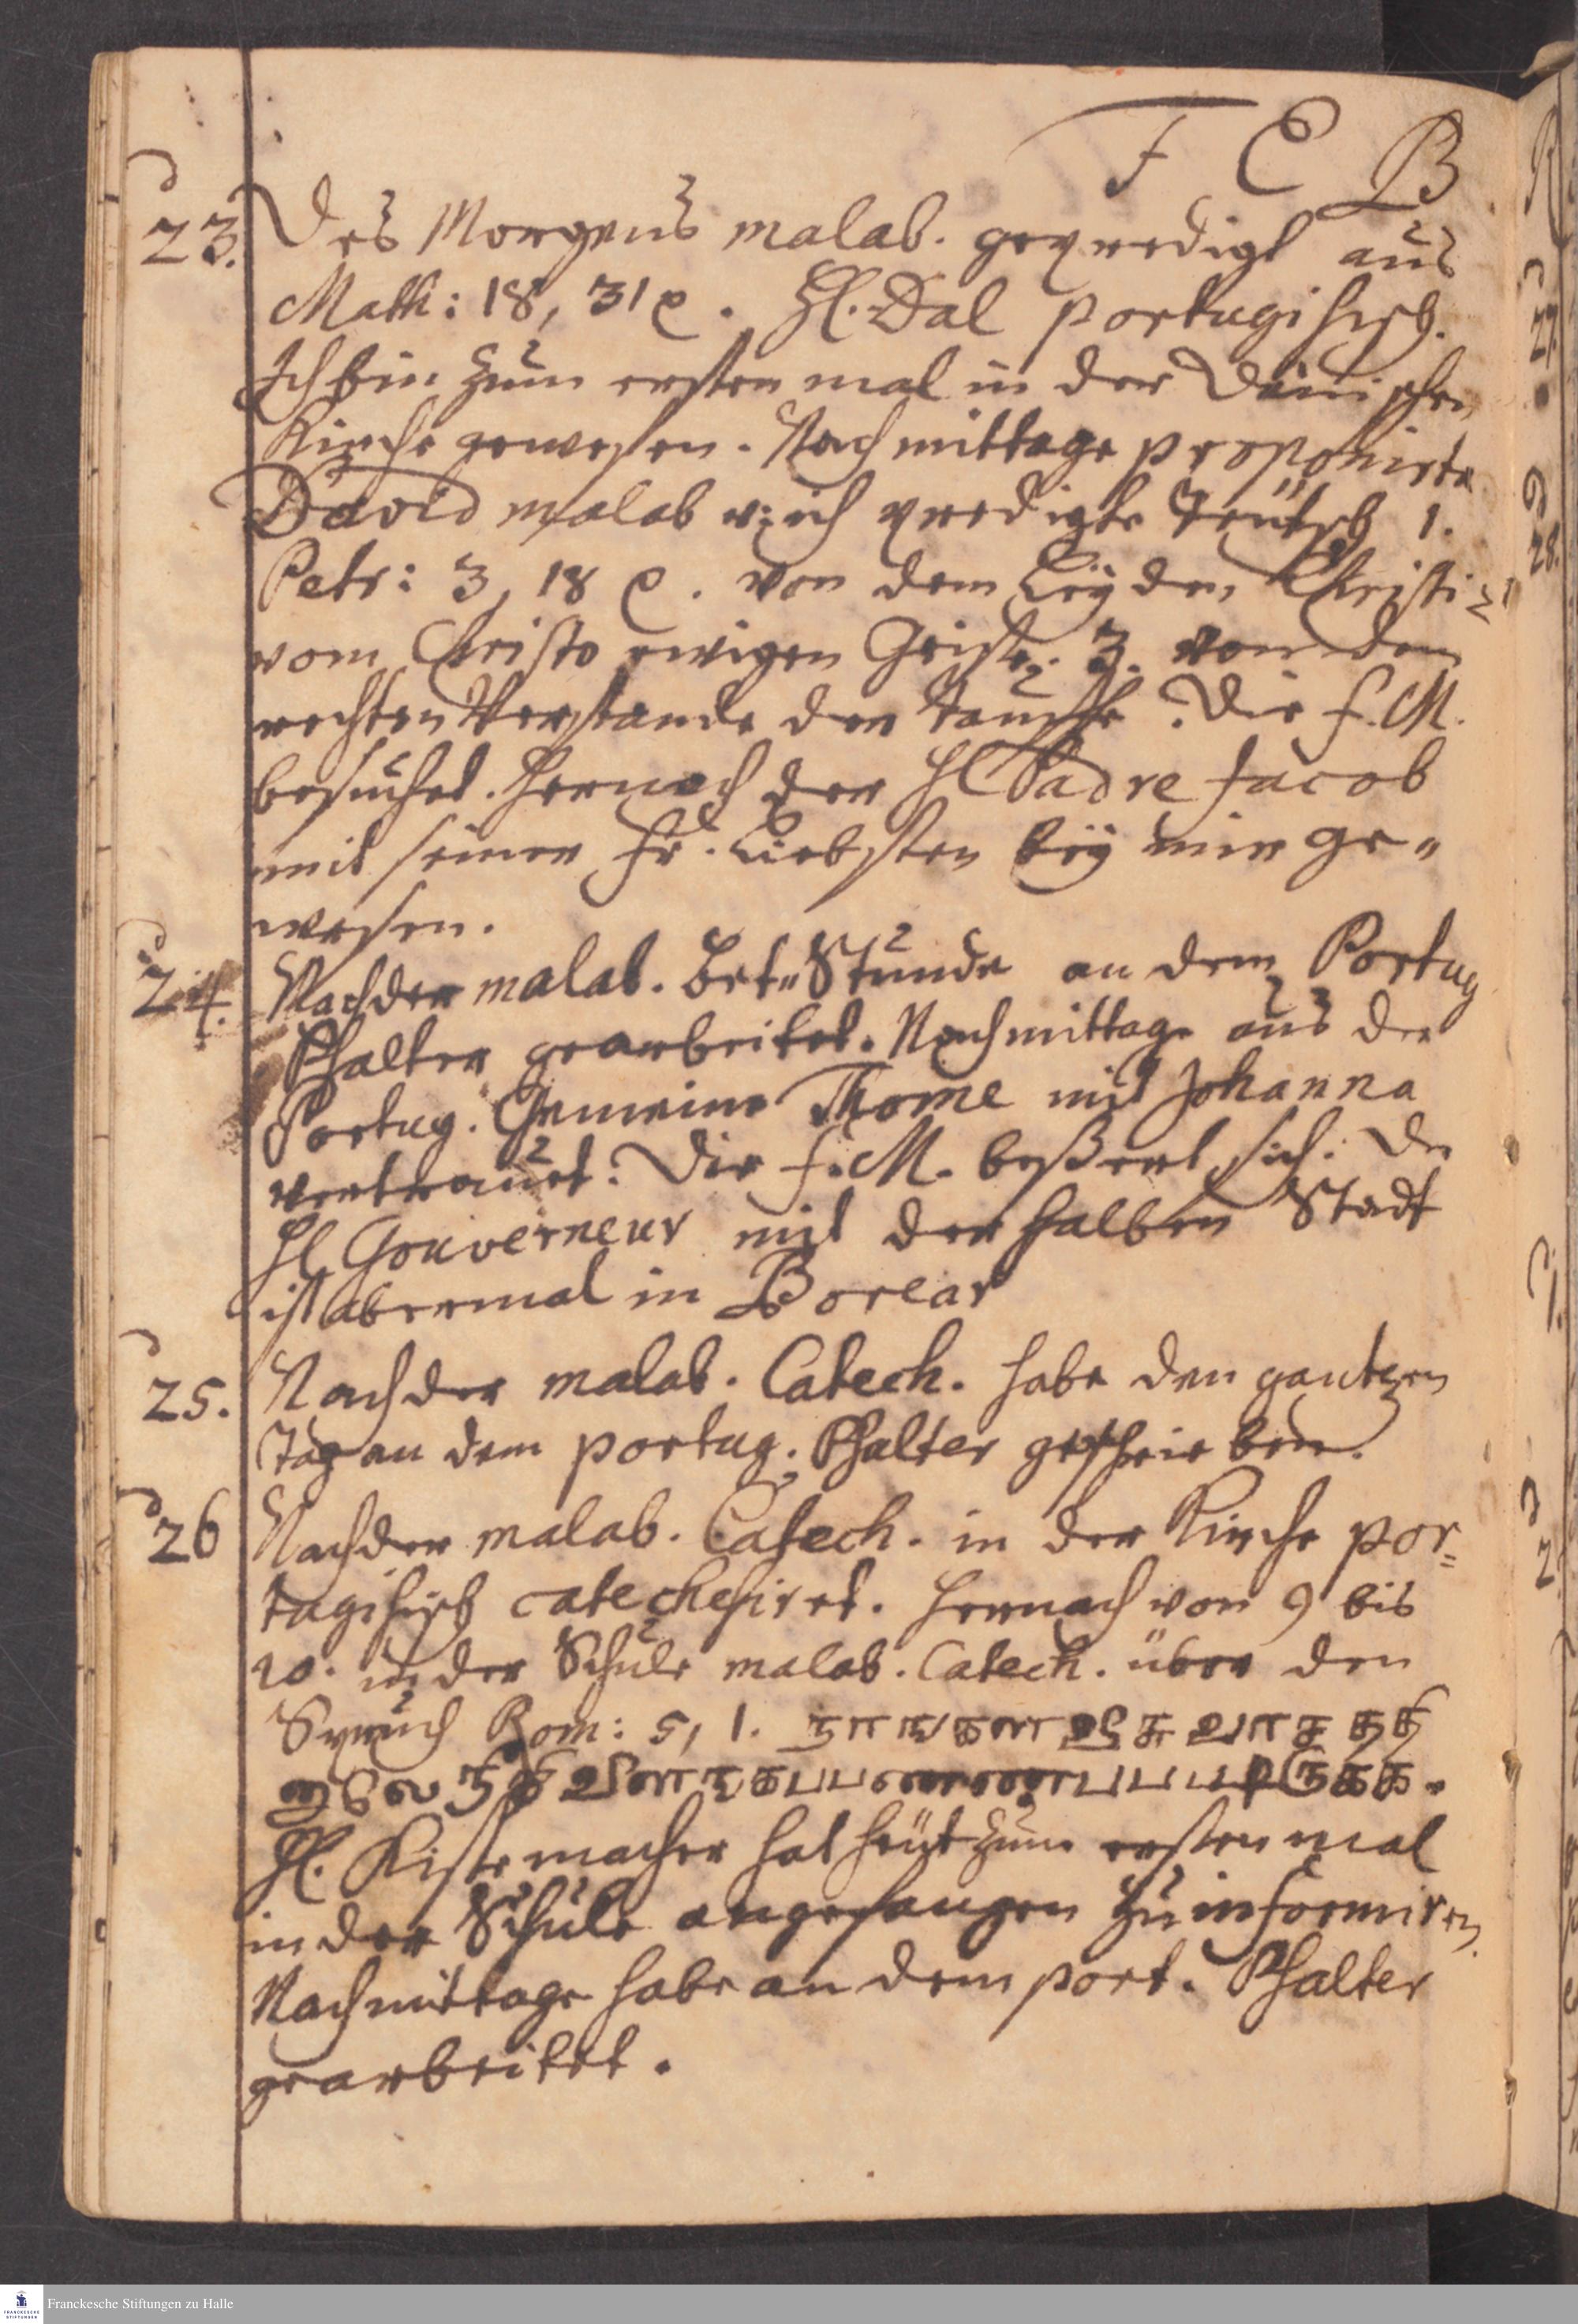 F E B
23. Des Morgens malab. geprediget aus
Matth: 18, 31 e. Hl. Dal portugisisch.
Ich bin zum ersten mal in der Dänischen
Kirche gewesen. Nachmittage proponirte
David malab u. ich predigte Teütsch 1.
Petr: 3, 18 e. von dem Leyden Christi 2
vom Christo ewigen Geiste. 3. von dem
rechten Verstande der Tauffe. Die f. M.
besuchet. Hernach der Hl Padre Jacob
mit seiner Fr. Liebsten bey mir ge„
wesen.
24. Nach der malab. Bet„Stunde an dem Portug
Psalter gearbeitet. Nachmittage aus der
Portug. Gemeine Thome mit Johanna
vertrauet. Die f. M. beßert sich. Der
Hl Gouverneur mit der halben Stadt
ist abermal in Borear
25. Nach der malab. Catech. habe den gantzen
Tag an dem portug. Psalter geschrieben.
26 Nach der malab. Catech. in der Kirche por=
tugisisch catechesiret. Hernach von 9 bis
10. in der Schule malab. Catech. über den
Spruch Rom: 5, 1.
Hl. Kistemacher hat heüt zum ersten mal
in der Schule angefangen zu informiren.
Nachmittage habe an dem port. Psalter
gearbeitet.
Franckesche Stiftungen zu Halle